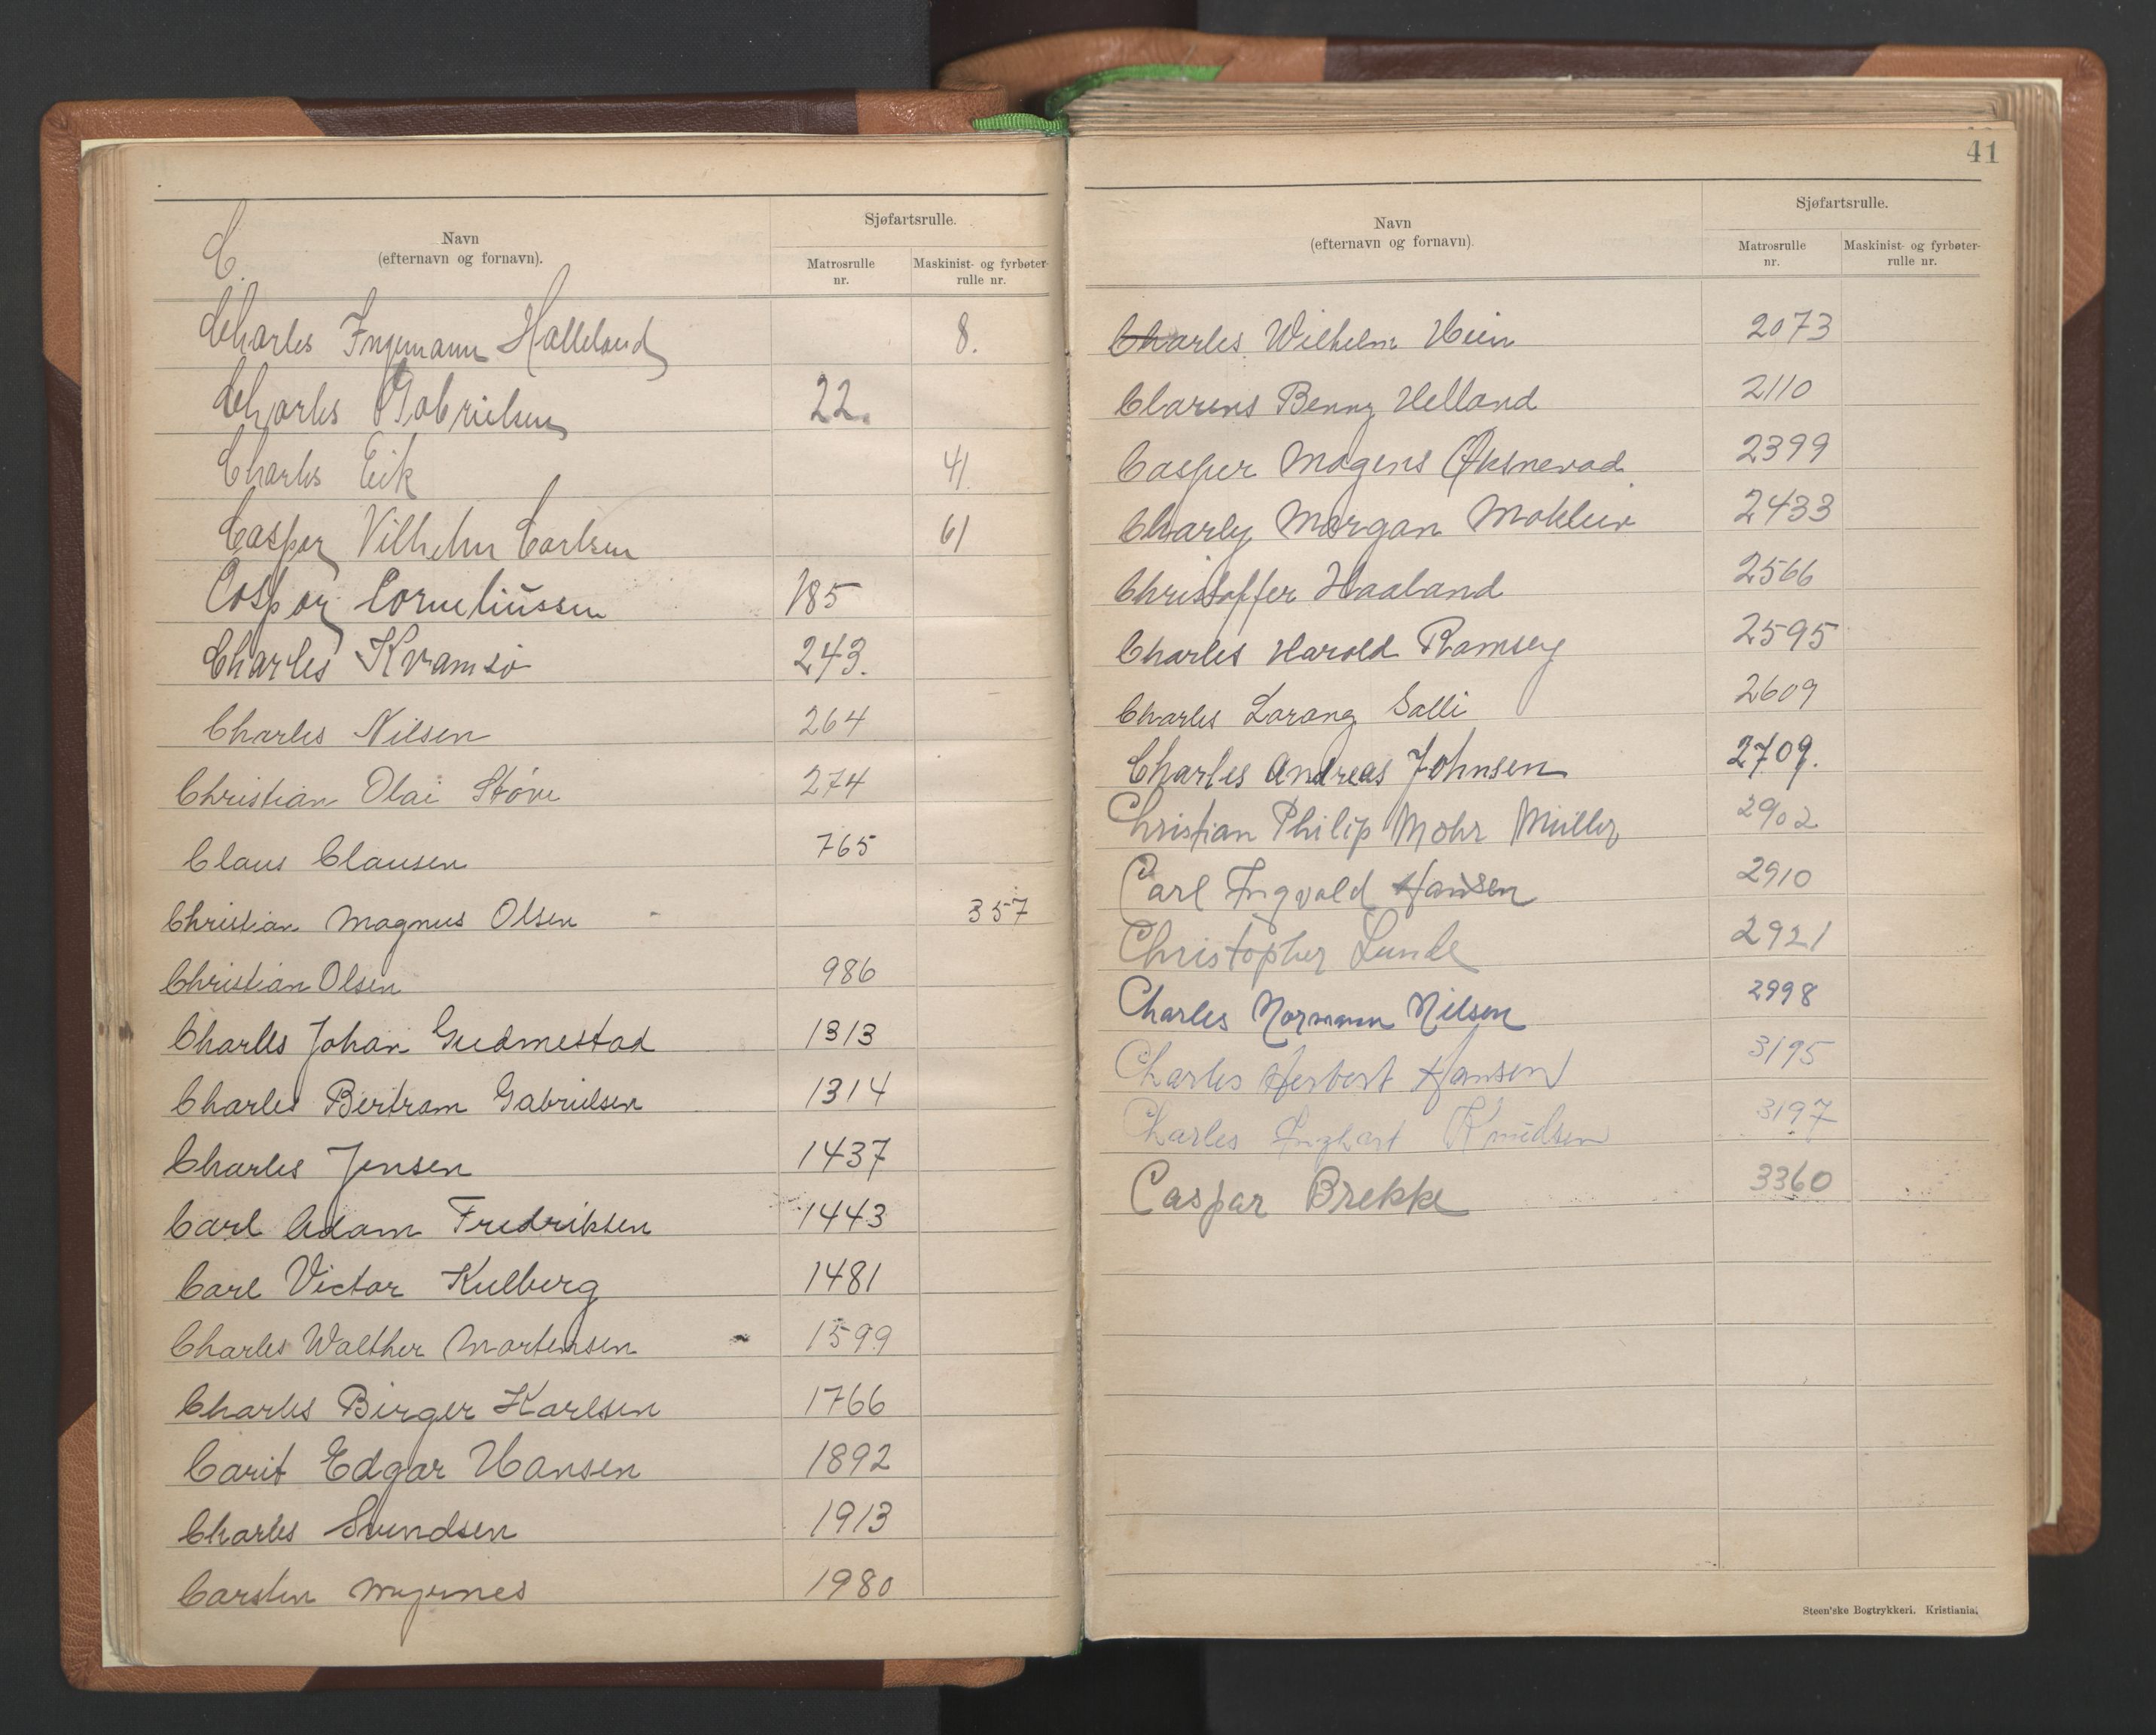 C.
Navn
(efternavn og fornavn).
Sjøfartsrulle.
Matrosrulle nr.
Maskinist- og fyrbøter-rulle nr.
Charles Ingemann Halleland 8.
Charles Gabrielsen 22.
Charles Eik 41
Caspar Vilhelm Carlsen 61
Caspar Corneliussen 185
Charles Kvamsö 243.
Charles Nilsen 264
Christian Olai Støve 274
Claus Clausen 765
Christian Magnus Olsen 357
Christian Olsen 986
Charles Johan Gudmestad 1313
Charles Bertram Gabrielsen 1314
Charles Jensen 1437
Carl Adam Fredriksen 1443
Carl Victor Kulberg 1481
Charles Walther Mortensen 1599
Charles Birger Karlsen 1766
Carit Edgar Hansen 1892
Charles Svendsen 1913
Carsten Myrnes 1980
41
Navn
(efternavn og fornavn).
Sjøfartsrulle.
Matrosrulle nr.
Maskinist- og fyrbøter-rulle nr.
Charles Wilhelm Hein 2073
Clarens Benny Helland 2110
Casper Mogens Øksnevad 2399
Charly Morgan Mokleiv 2433
Christoffer Haaland 2566
Charles Harold Ramsey 2595
Charles Lorang Salli 2609
Charles Andreas Johnsen 2709.
Christian Philip Mohr Müller 2902
Carl Ingvald Hansen 2910
Christopher Lunde 2921
Charles Normann Nilsen 2998
Charles Herbert Hansen 3195
Charles Knudsen 3197
Caspar Brekke 3360
Steen'ske Bogtrykkeri. Kristiania.